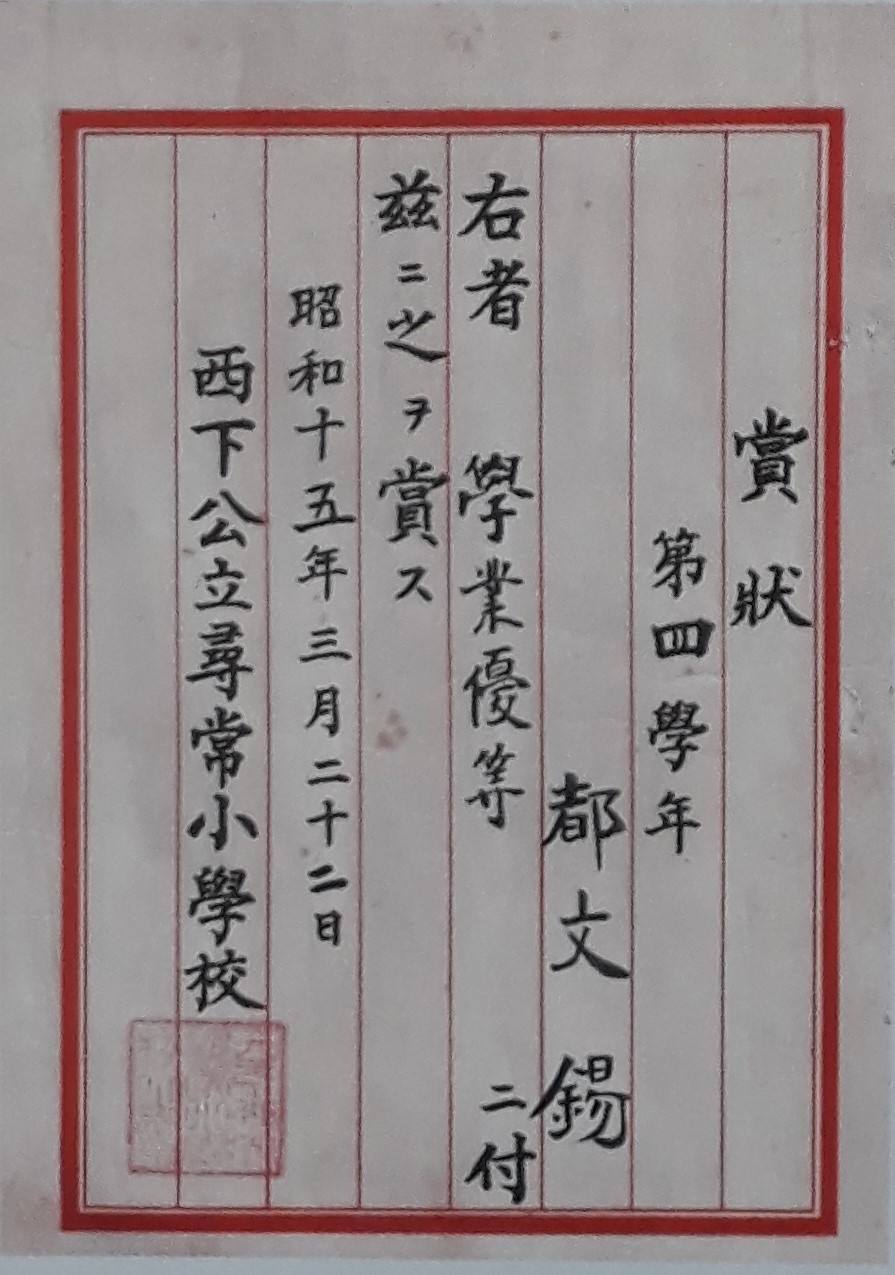 賞狀
第四學年
都文錫
右者 學業優等 ニ付
茲ニ之ヲ賞ス
昭和十五年三月二十二日
西下公立尋常小學校